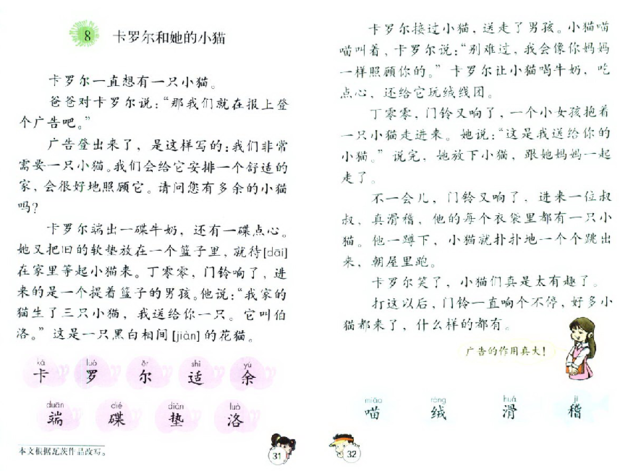 8 卡罗尔和她的小猫
卡罗尔一直想有一只小猫。
爸爸对卡罗尔说：“那我们就在报上登
个广告吧。”
广告登出来了，是这样写的：我们非常
需要一只小猫。我们会给它安排一个舒适的
家，会很好地照顾它。请问您有多余的小猫
吗？
卡罗尔端出一碟牛奶，还有一碟点心。
她又把旧的软垫放在一个篮子里，就待[dāi]
在家里等起小猫来。丁零零，门铃响了，进
来的是一个提着篮子的男孩。他说：“我家的
猫生了三只小猫，我送给你一只。它叫伯
洛。”这是一只黑白相间[jiàn]的花猫。
kǎ luó ěr shì yú
卡 罗 尔 适 余
duān dié diàn luò
端 碟 垫 洛
本文根据瓦茨作品改写。
31
卡罗尔接过小猫，送走了男孩。小猫喵
喵叫着，卡罗尔说：“别难过，我会像你妈妈
一样照顾你的。”卡罗尔让小猫喝牛奶，吃
点心，还给它玩绒线团。
丁零零，门铃又响了，一个小女孩抱着
一只小猫走进来。她说：“这是我送给你的
小猫。”说完，她放下小猫，跟她妈妈一起
走了。
不一会儿，门铃又响了，进来一位叔
叔，真滑稽，他的每个衣袋里都有一只小
猫。他一蹲下，小猫就扑扑地一个个跳出
来，朝屋里跑。
卡罗尔笑了，小猫们真是太有趣了。
打这以后，门铃一直响个不停，好多小
猫都来了，什么样的都有。
广告的作用真大！
miāo róng huá jī
喵 绒 滑 稽
32